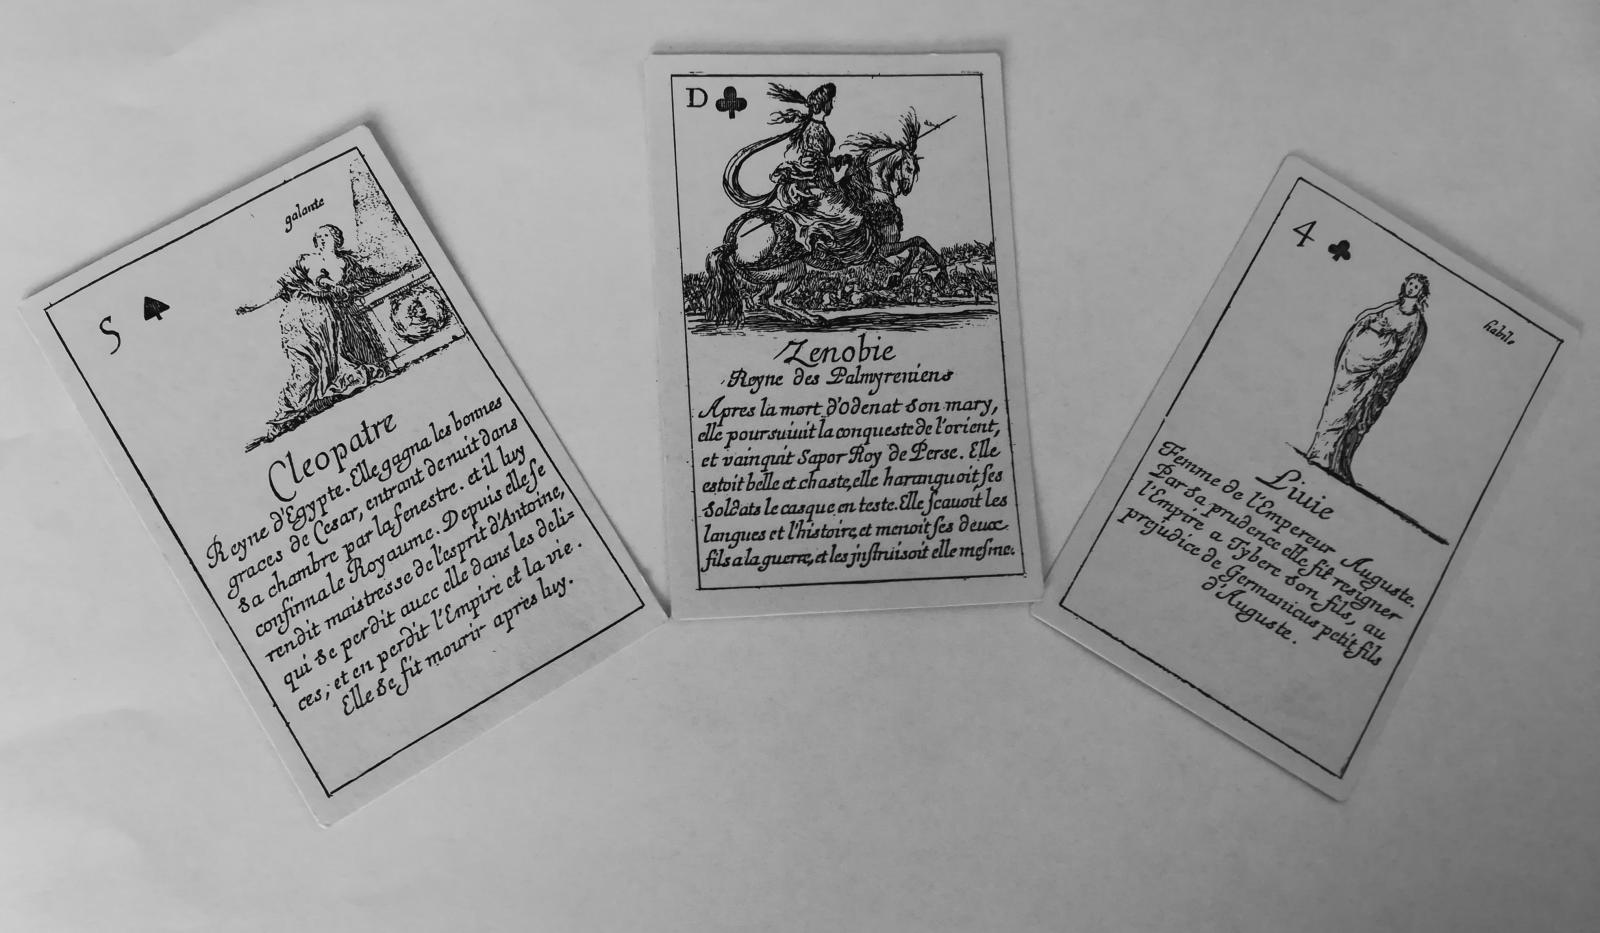 5
galante
Cleopatre
Reyne d'Egypte. Elle gagna les bonnes
graces de Cesar, entrant de nuit dans
sa chambre par la fenestre. et il luy
confirma le Royaume. Depuis elle se
rendit maistresse de l'esprit d'Antoine,
qui se perdit auec elle dans les deli=
ces; et en perdit l'Empire et la vie.
Elle se fit mourir apres luy.
D
Zenobie
Reyne des Palmyreniens
Apres la mort d'Odenat son mary,
elle poursuiuit la conqueste de l'orient,
et vainquit Sapor Roy de Perse. Elle
estoit belle et chaste, elle haranguoit ses
soldats le casque en teste. Elle scauoit les
langues et l'histoire, et menoit ses deux
fils a la guerre, et les jnstruisoit elle mesme.
4
habile
Liuie
Femme de l'Empereur Auguste.
Par sa prudence elle fit resigner
l'Empire a Tybere son fils, au
prejudice de Germanicus petit fils
d'Auguste.